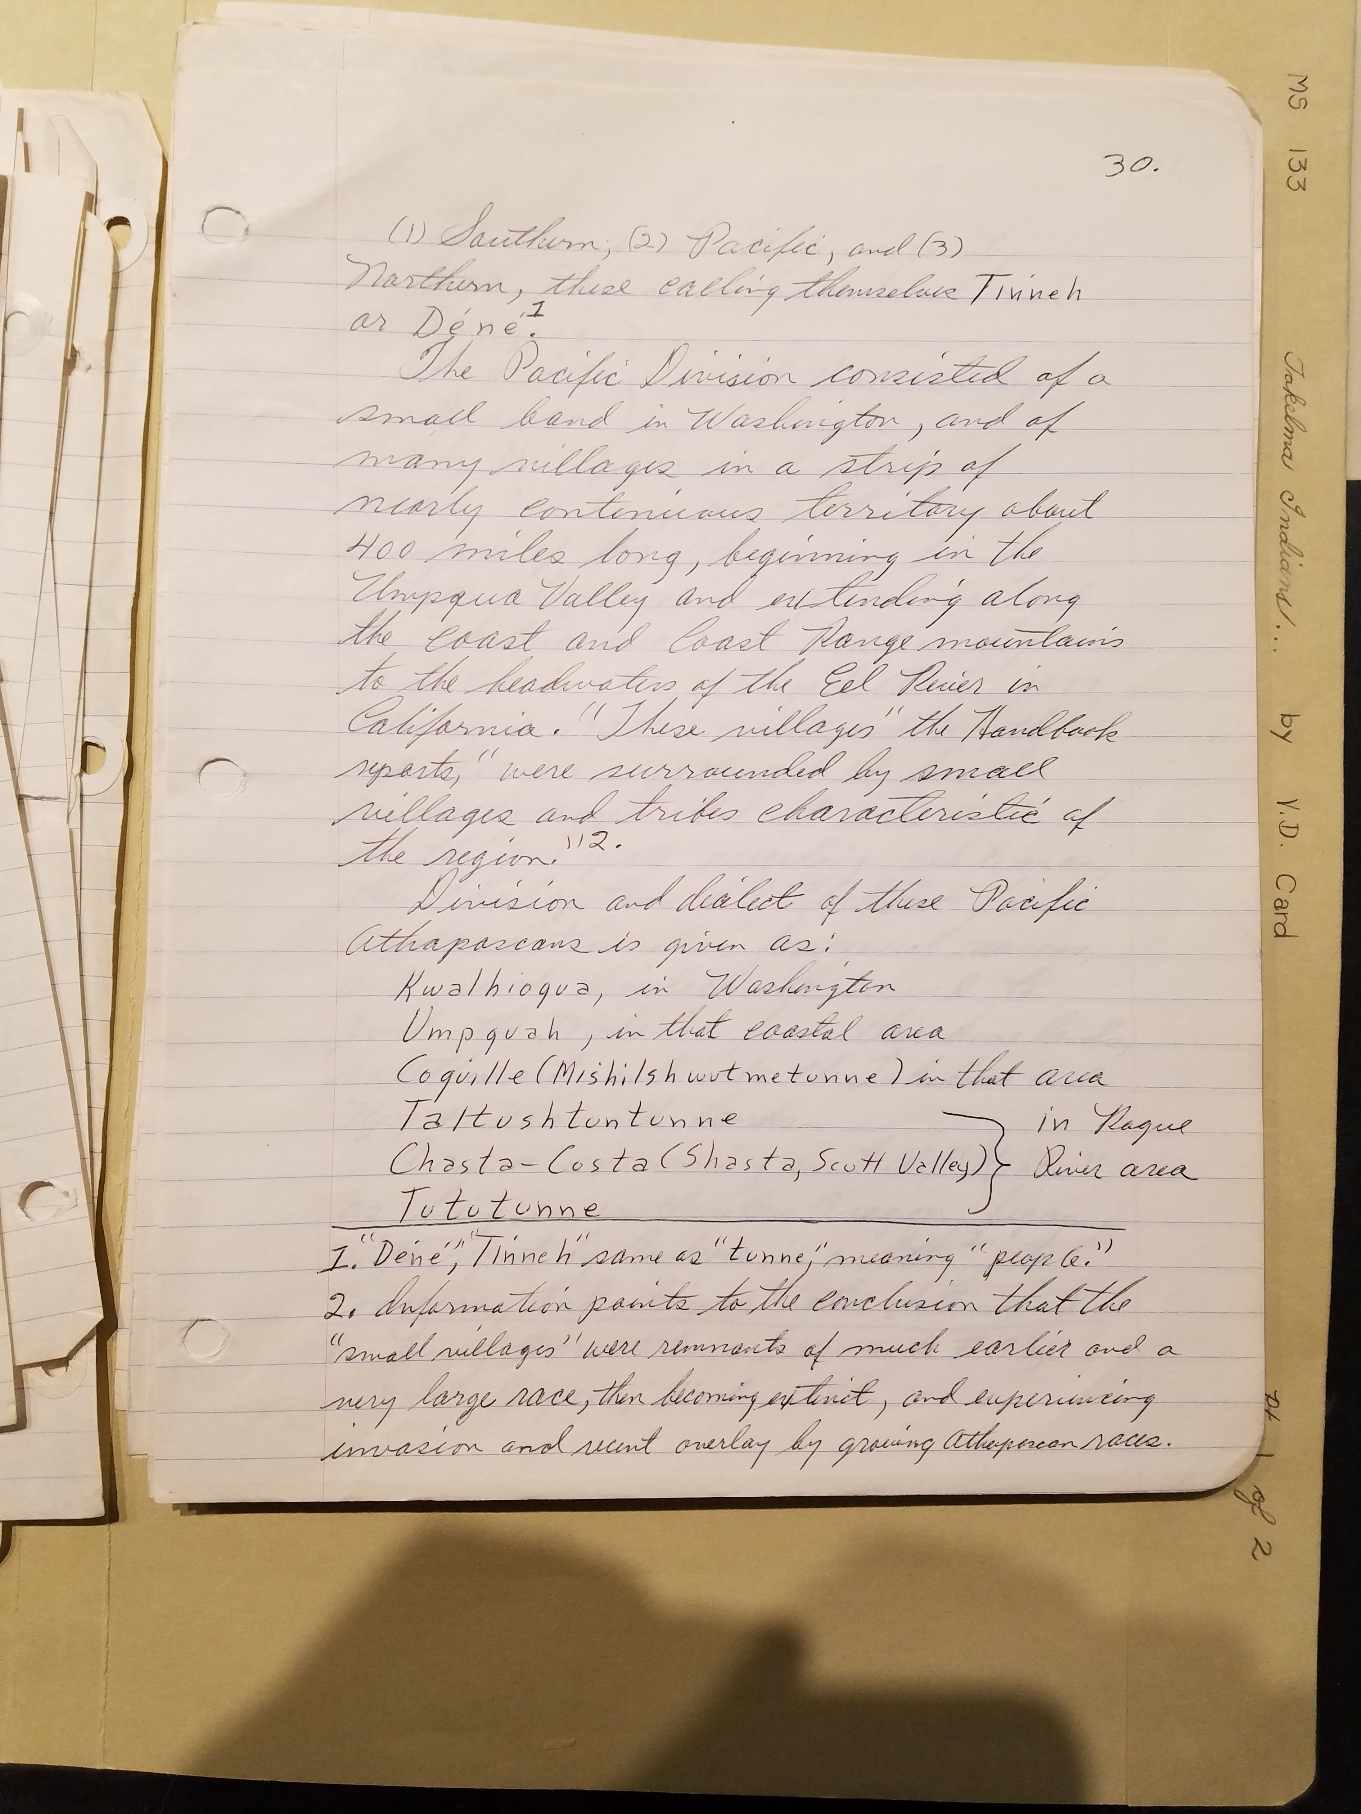 30.
(1) Southern, (2) Pacific, and (3)
Northern, these calling themselves Tinneh
or Déné.1
The Pacific Division consisted of a
small band in Washington, and of
many villages in a strip of
nearly continuous territory about
400 miles long, beginning in the
Umpqua Valley and extending along
the coast and Coast Range mountains
to the headwaters of the Eel River in
California. "These villages" the Handbook
reports, "were surrounded by small
villages and tribes characteristic of
the region."2.
Division and dialect of these Pacific
Athapascans is given as:
Kwalhioqua, in Washington
Umpquah, in that coastal area
Coquille (Mishilshwutmetunne) in that area
Taltushtuntunne
Chasta-Costa (Shasta, Scott Valley) } in Rogue River area
Tututunne
1. "Déné", "Tinneh" same as "tunne," meaning "people."
2. Information points to the conclusion that the
"small villages" were remnants of much earlier and a
very large race, then becoming extinct, and experiencing
invasion and recent overlay by growing Athapascan races.
MS 133 Takelma Indians... by V.D. Card pt 1 of 2